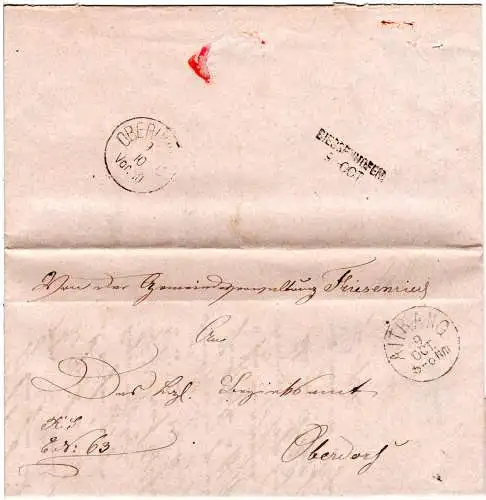 OBERD
9
10
Vorm
BIESSENHOFEN
9 OCT
Von der Gemeindeverwaltung Friesenried
An
Das kgl. Bezirksamt
Oberdorf
R. S.
E. Nr: 63
AITRANG
9
OCT
5-6 NM